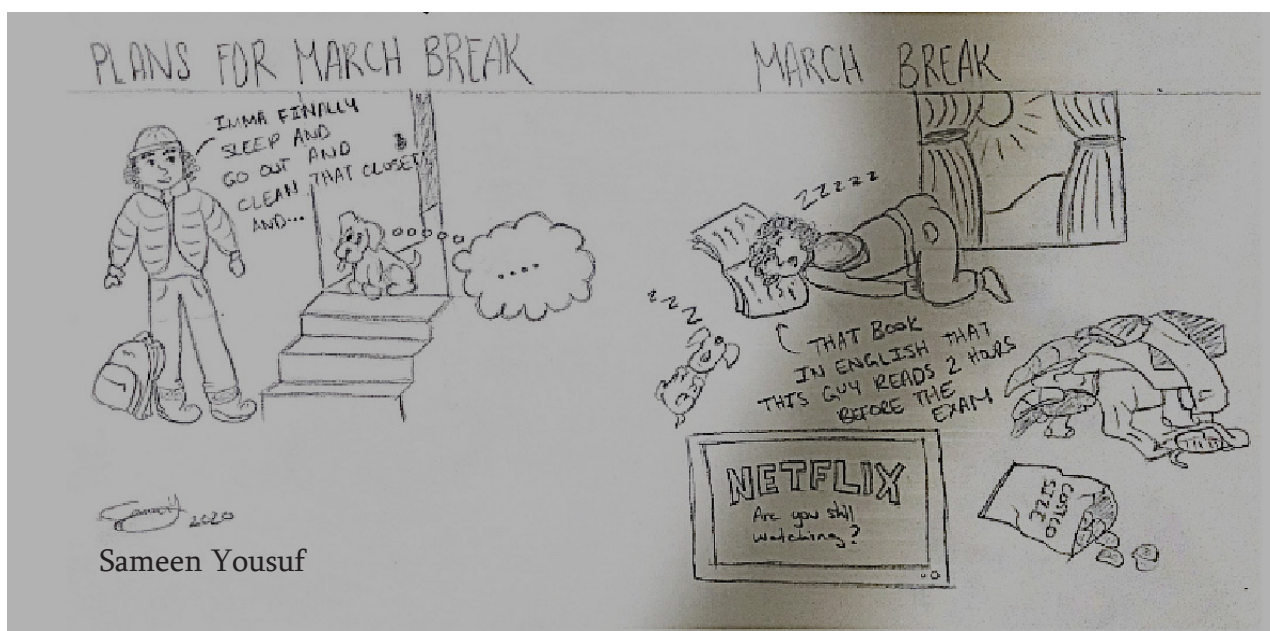 PLANS FOR MARCH BREAK
IMMA FINALLY
SLEEP AND
GO OUT AND
CLEAN THAT CLOSET
AND...
....
2020
Sameen Yousuf
MARCH BREAK
ZZZZZ
ZZZ
THAT BOOK
IN ENGLISH THAT
THIS GUY READS 2 HOURS
BEFORE THE
EXAM
NETFLIX
Are you still
watching?
COSTCO
SIZE